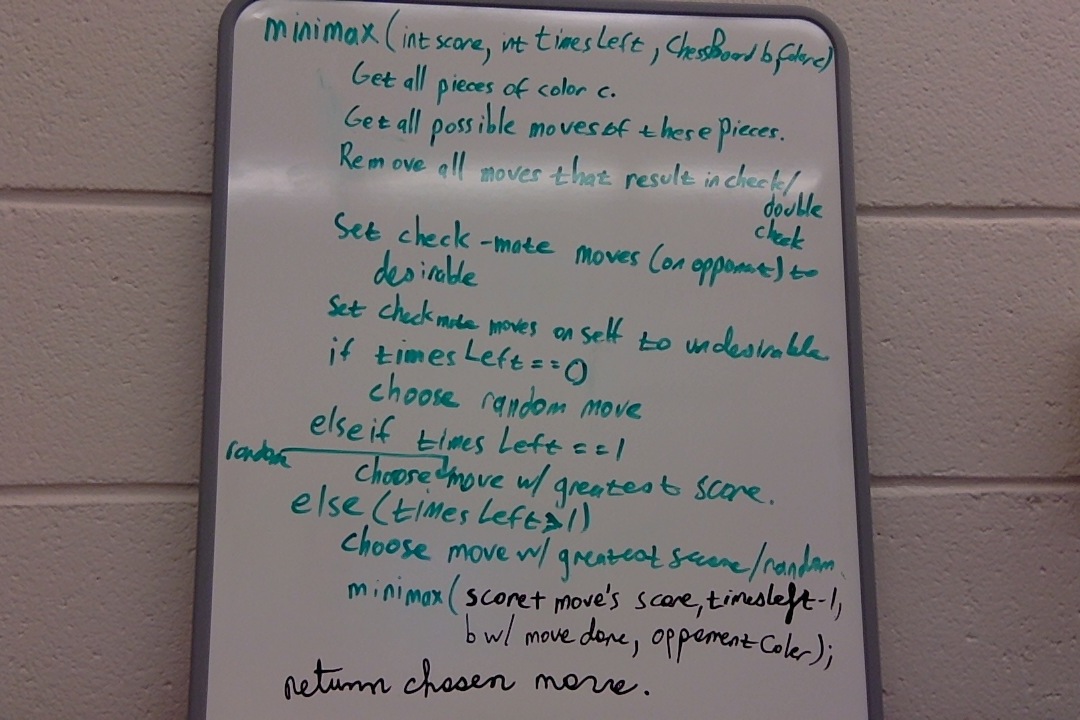 minimax (int score, int timesLeft, ChessBoard b, Color c)
Get all pieces of color c.
Get all possible moves of these pieces.
Remove all moves that result in check/
double
check
Set check-mate moves (on opponent) to
desirable
Set checkmate moves on self to undesirable
if timesLeft==0
choose random move
else if timesLeft==1
random
choose move w/ greatest score.
else (timesLeft>1)
choose move w/ greatest score/random
minimax (score + move's score, timesleft-1,
b w/ move done, opponent Color);
return chosen move.